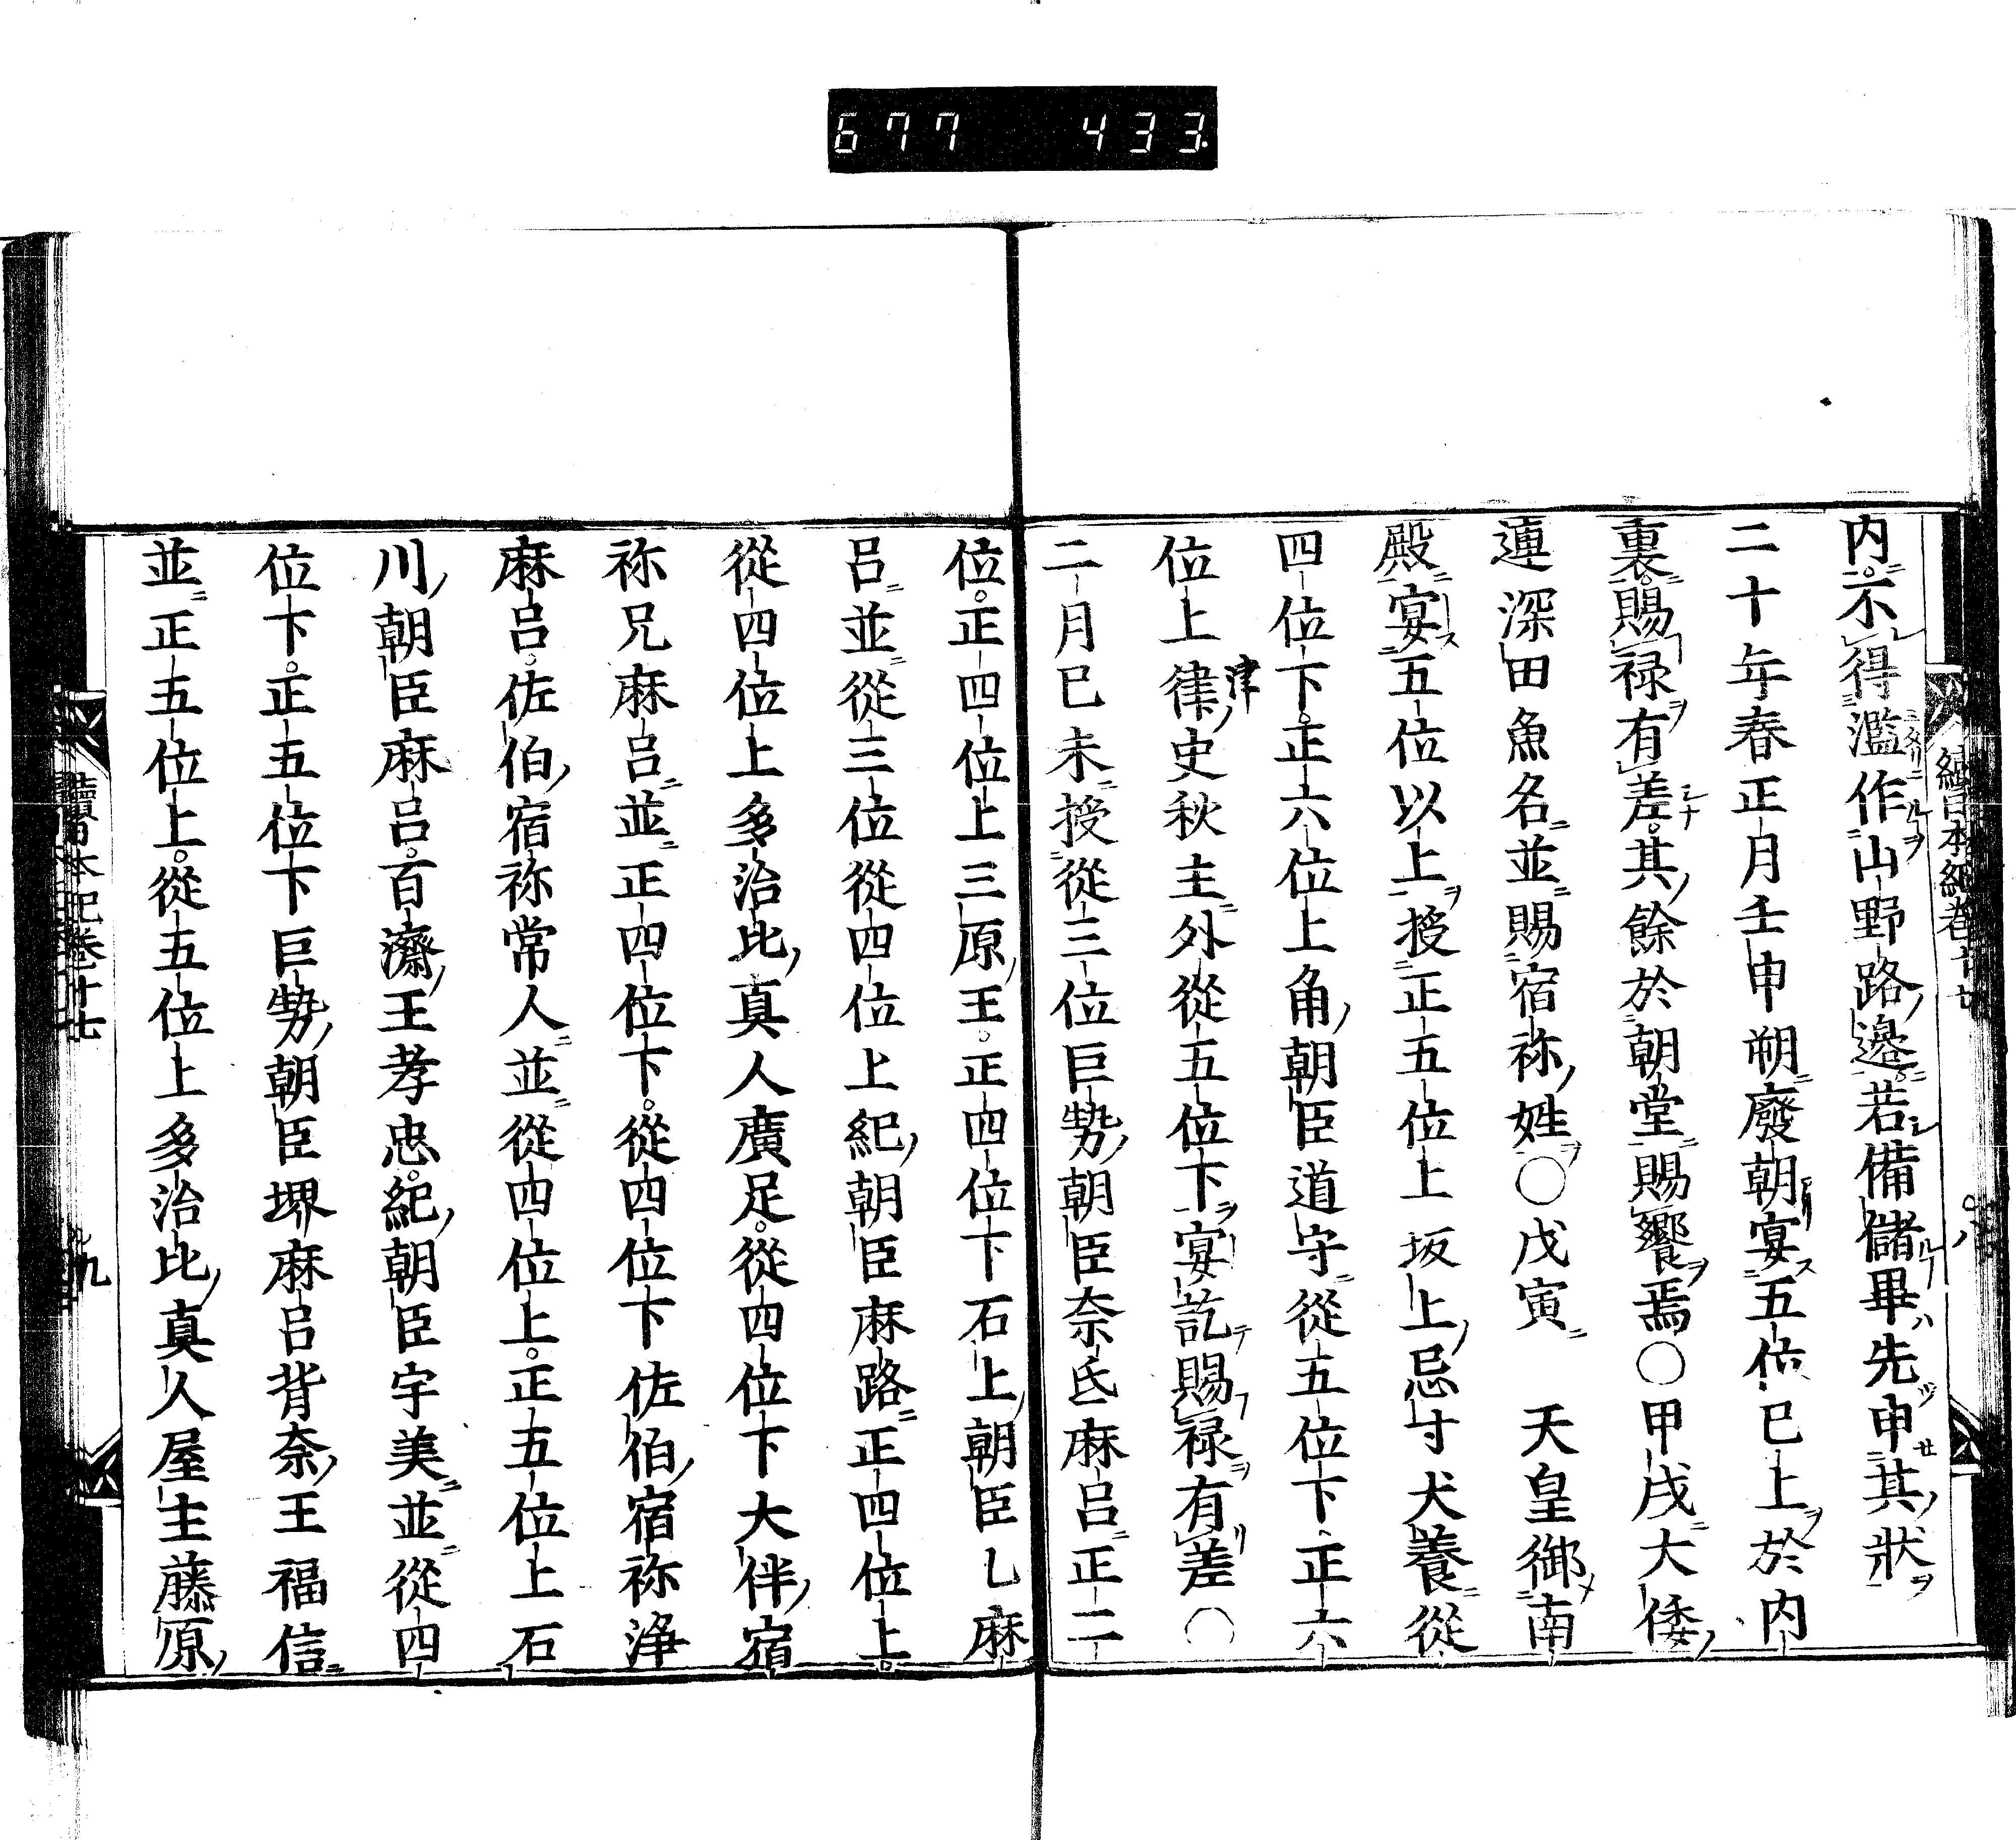 677 433
内不得濫作山野路邊若備儲畢先申其狀
二十年春正月壬申朔廢朝宴五位已上於内
裏賜禄有差其餘於朝堂賜饗焉〇甲戌大倭
連深田魚名並賜宿祢姓〇戊寅 天皇御南
殿宴五位以上授正五位上坂上忌寸犬養從
四位下正六位上角朝臣道守從五位下正六
位上律史秋主外從五位下宴訖賜禄有差〇
津
二月已未授從三位巨勢朝臣奈氐麻呂正二
位正四位上三原王正四位下石上朝臣乚麻
呂並從三位從四位上紀朝臣麻路正四位上
從四位上多治比真人廣足從四位下大伴宿
祢兄麻呂並正四位下從四位下佐伯宿祢淨
麻呂佐伯宿祢常人並從四位上正五位上石
川朝臣麻呂百濟王孝忠紀朝臣宇美並從四
位下正五位下巨勢朝臣堺麻呂背奈王福信
並正五位上從五位上多治比真人屋主藤原
本紀卷十七
九